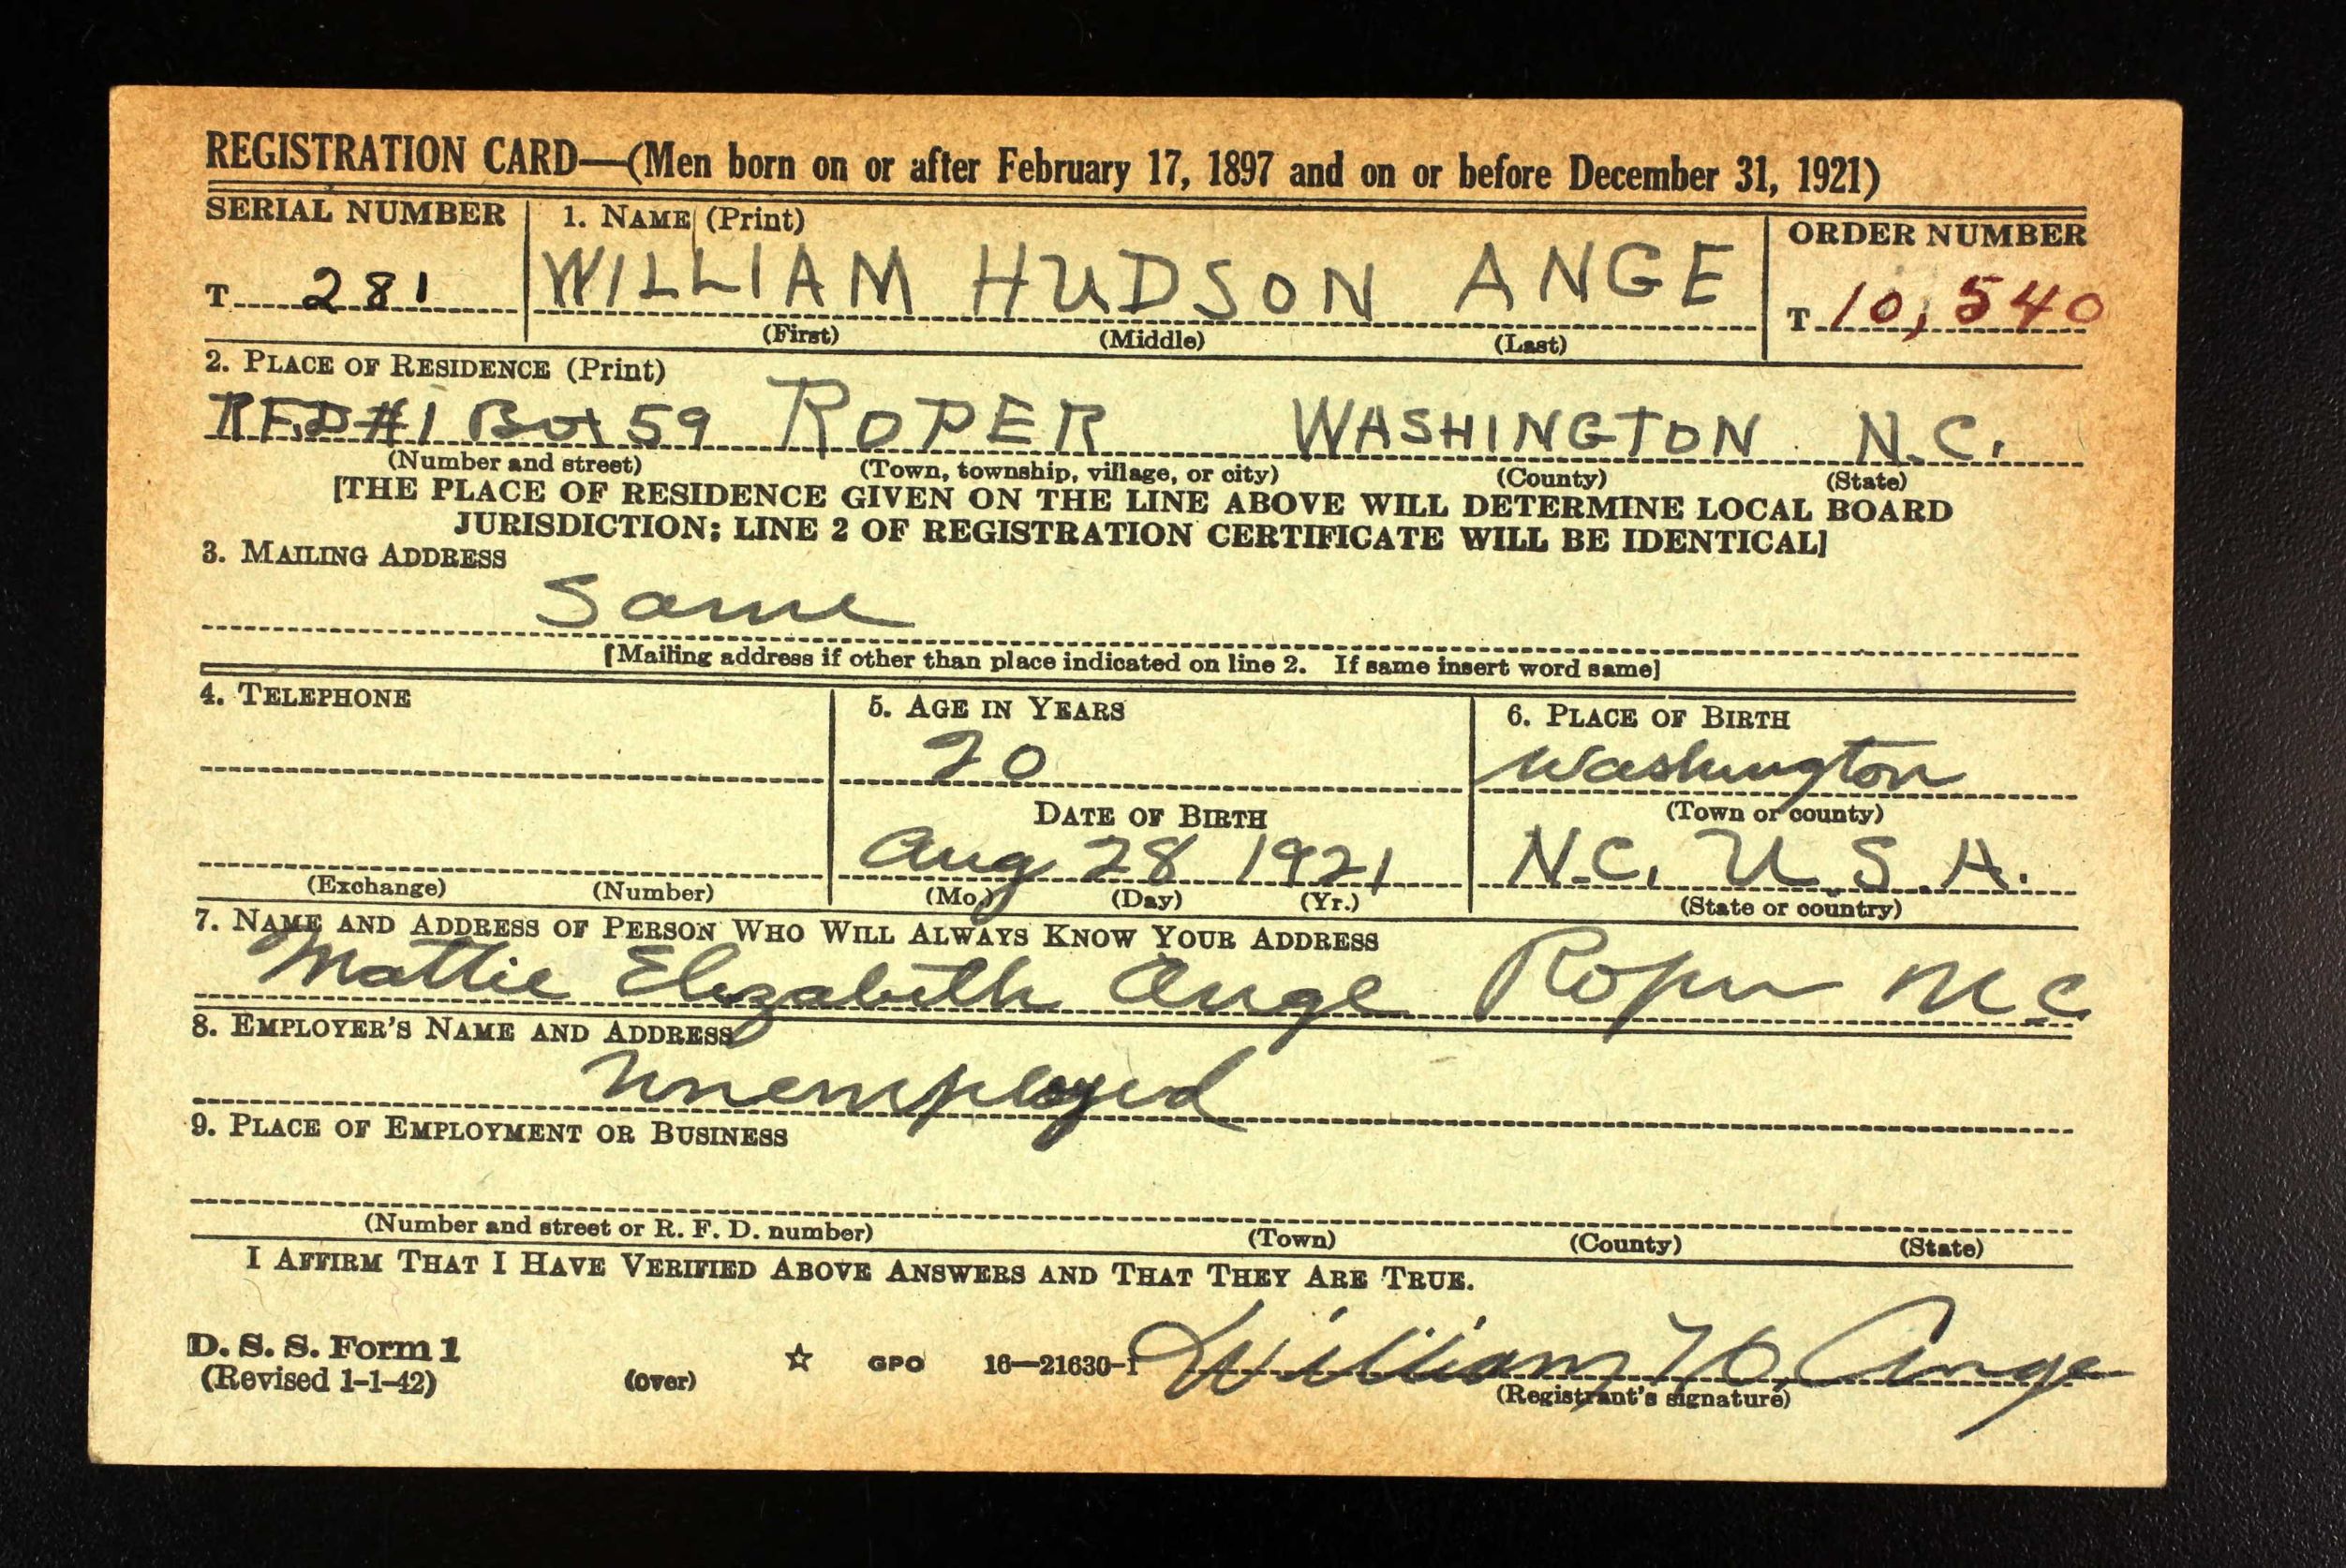 REGISTRATION CARD—(Men born on or after February 17, 1897 and on or before December 31, 1921)
SERIAL NUMBER 1. NAME (Print) ORDER NUMBER
T 281 WILLIAM HUDSON ANGE T 10,540
(First) (Middle) (Last)
2. PLACE OF RESIDENCE (Print)
R.F.D #1 Box 59 ROPER WASHINGTON N.C.
(Number and street) (Town, township, village, or city) (County) (State)
[THE PLACE OF RESIDENCE GIVEN ON THE LINE ABOVE WILL DETERMINE LOCAL BOARD
JURISDICTION; LINE 2 OF REGISTRATION CERTIFICATE WILL BE IDENTICAL]
3. MAILING ADDRESS
Same
[Mailing address if other than place indicated on line 2. If same insert word same]
4. TELEPHONE 5. AGE IN YEARS 6. PLACE OF BIRTH
20 Washington
DATE OF BIRTH (Town or county)
Aug 28 1921 N.C. U.S.A.
(Exchange) (Number) (Mo.) (Day) (Yr.) (State or country)
7. NAME AND ADDRESS OF PERSON WHO WILL ALWAYS KNOW YOUR ADDRESS
Mattie Elizabeth Ange Roper N.C.
8. EMPLOYER'S NAME AND ADDRESS
Unemployed
9. PLACE OF EMPLOYMENT OR BUSINESS
(Number and street or R. F. D. number) (Town) (County) (State)
I AFFIRM THAT I HAVE VERIFIED ABOVE ANSWERS AND THAT THEY ARE TRUE.
D. S. S. Form 1
(Revised 1-1-42) (over) ☆ GPO 16—21630-1 William H. Ange
(Registrant's signature)